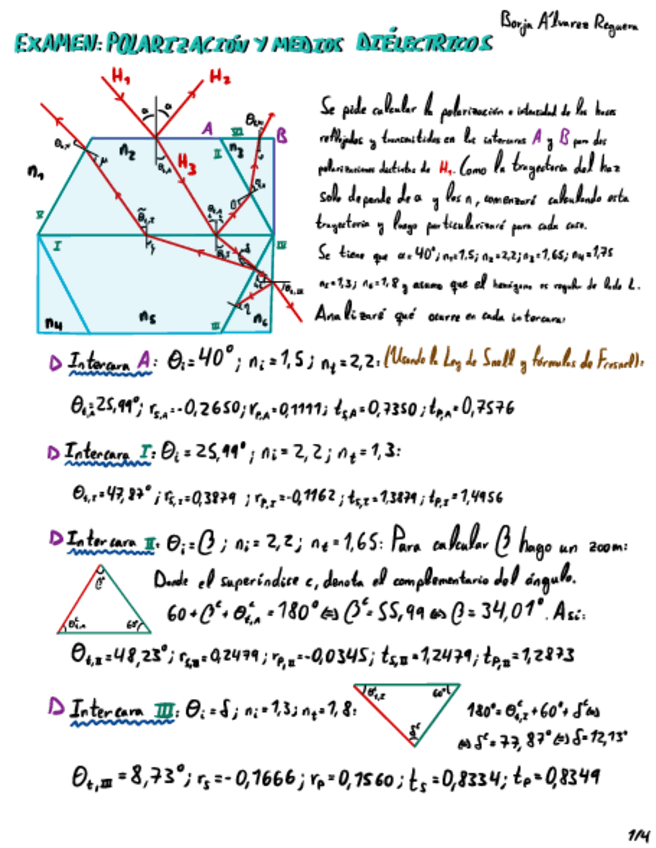 Borja Álvarez Reguera
EXAMEN: POLARIZACIÓN Y MEDIOS DIÉLECTRICOS
H₁ H₂
α α
A VI B
n₂ II n₃
n₁ H₃
V I IV
n₄ n₅ III n₆
Se pide calcular la polarización e intensidad de los haces
reflejados y transmitidos en las intercaras A y B para dos
polarizaciones distintas de H₁. Como la trayectoria del haz
solo depende de α y los n, comenzaré calculando esta
trayectoria y luego particularizaré para cada caso.
Se tiene que α=40°; n₁=1,5; n₂=2,2; n₃=1,65; n₄=1,75
n₅=1,3; n₆=1,8 y asumo que el hexágono es regular de lado L.
Analizaré qué ocurre en cada intercara:
Intercara A: θᵢ=40°; nᵢ=1,5; nₜ=2,2: (Usando la Ley de Snell y fórmulas de Fresnel):
θt,A=25,99°; rs,A=-0,2650; rp,A=0,1111; ts,A=0,7350; tp,A=0,7576
Intercara I: θᵢ=25,99°; nᵢ=2,2; nₜ=1,3:
θt,I=47,87°; rs,I=0,3879; rp,I=-0,1162; ts,I=1,3879; tp,I=1,4956
Intercara II: θᵢ=β; nᵢ=2,2; nₜ=1,65: Para calcular β hago un zoom:
Donde el superíndice c, denota el complementario del ángulo.
βᶜ θᶜt,A 60°
60+βᶜ+θᶜt,A=180° ⇔ βᶜ=55,99 ⇔ β=34,01°. Así:
θt,II=48,23°; rs,II=0,2479; rp,II=-0,0345; ts,II=1,2479; tp,II=1,2873
Intercara III: θᵢ=δ; nᵢ=1,3; nₜ=1,8:
θᶜt,I 60° δᶜ
180°=θᶜt,I+60°+δᶜ⇔
⇔ δᶜ=77,87° ⇔ δ=12,13°
θt,III=8,73°; rs=-0,1666; rp=0,1560; ts=0,8334; tp=0,8349
1/4